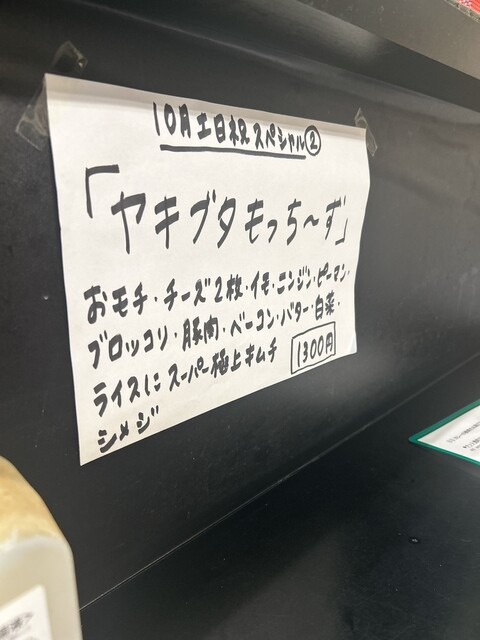 10月土日祝スペシャル②
「ヤキブタもっち〜ず」
おモチ・チーズ2枚・イモ・ニンジン・ピーマン・
ブロッコリ・豚肉・ベーコン・バター・白菜・
ライスに スーパー極上キムチ 1300円
シメジ